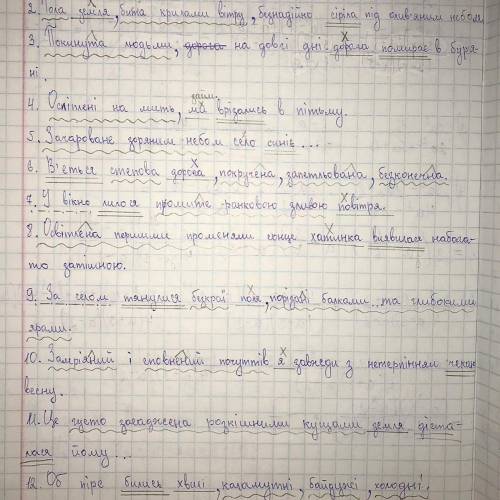 2. Гола земля, бита крилами вітру, безнадійно сіріла під олив'яним небом
3. Покинута людьми, дорога на довгі дні дорога помирає в буря-
ні.
займ.
4. Осліплені на мить, ми врізались в пітьму.
5. Зачароване зоряним небом село синіє...
6. В'ється степова дорога, покручена, запетльована, безконечна.
7. У вікно лилося промите ранковою зливою повітря.
8. Освітлена першими променями сонця хатинка виявилася набага-
то затишною.
9. За селом тягнулися безкраї поля, порізані балками та глибокими
ярами.
10. Замріяний і сповнений почуттів я завжди з нетерпінням чекаю
весну.
11. Це густо засаджена розкішними кущами земля діста-
лася йому...
12. Об піре бились хвилі, каламутні, байдужі, холодні.